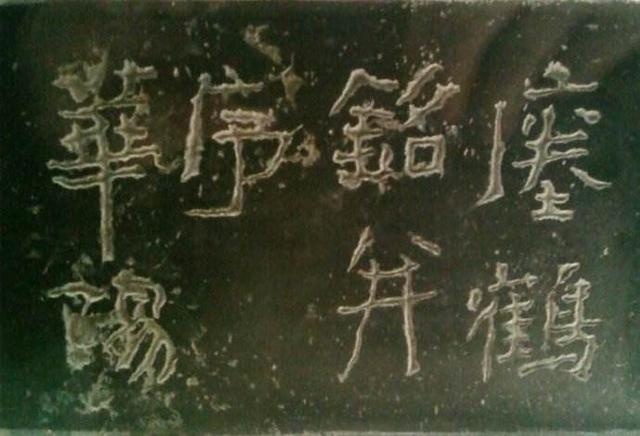 瘞鶴
銘并
序
華陽